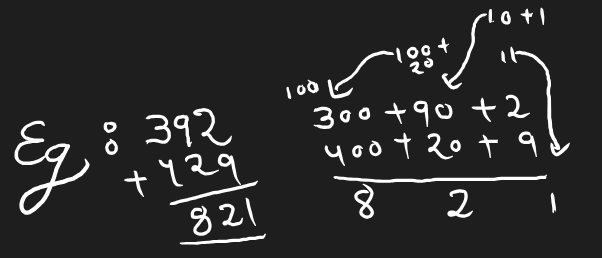 Eg : 392
+ 429
821
10 + 1
100 +
20
11
100
300 + 90 + 2
400 + 20 + 9
8 2 1